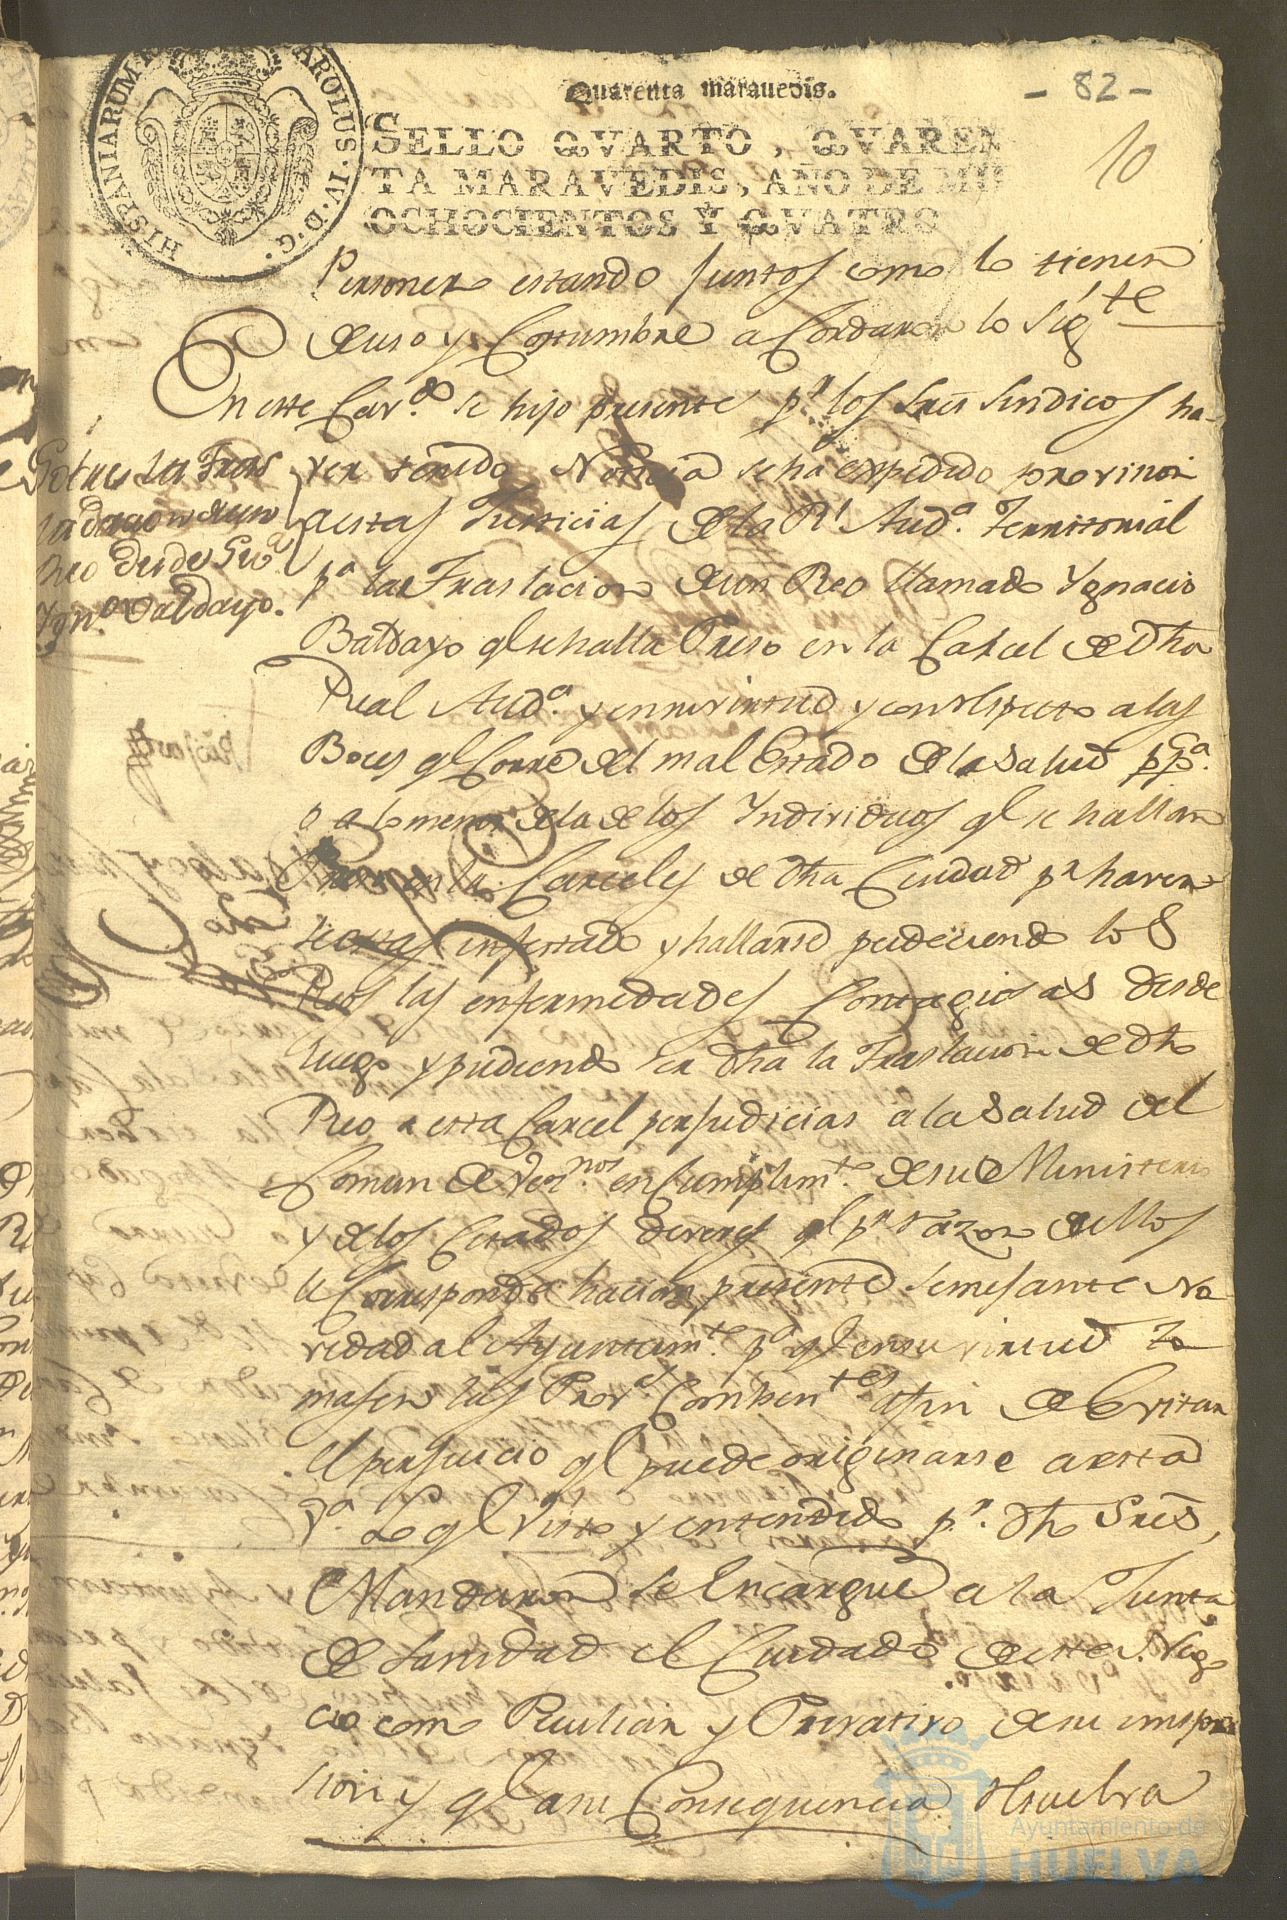 Quarenta marauedis.
- 82 -
10
HISPANIARUM CAROLUS·IV·D·G·
SELLO QVARTO, QVAREN
TA MARAVEDIS, AÑO DE MIL
OCHOCIENTOS Y QVATRO
Personero estando juntos como lo tienen
de uso y Costumbre a Cordaron lo sig.te
En este Cav.do se hijo presente p.r los Sres Sindicos ha-
ver tenido Noticia se ha expedido provision
a estas Justicias de la R.l Aud.a territorial
p.a la Traslacion de un Reo llamado Ygnacio
Baldayo q.l se halla Preso en la Carcel de dha
Real Aud.a y en su virtud y con respecto a las
Boces q.l Corre del mal Estado de la Salud pp.ca
o a lo menos de la de los Yndividuos q.l se hallan
Presos en las Carceles de dha Ciudad p.r haver
se estas infestado y hallarse padeciendo los
Reos las enfermedades Contagiosas desde
luego y pudiendo ser dha la traslacion de dho
Reo a esta Carcel perjudicias a la Salud del
Comun de Vez.nos en Cumplim.to de su Ministerio
y de los Citados deveres q.l p.r razon de ellos
le Corresponde hacian presente semejante No
vedad al Ayuntam.to p.a q.l en su virtud to
masen las Prov.s Conben.tes a fin de Evitar
el perjuicio q.l puede originarse a esta
V.a Lo q.l Visto y entendido p.r dhos Sres,
Mandaron se Encargue a la Junta
de Sanidad el Cuidado de este Nego
cio como Peculiar y Privativo de su inspec
cion y q.l a su Consequencia resuelva
Sobre la Tras
lacion de un
Reo desde Sev.a
Ygn.o Valdayo.
Ayuntamiento de
HUELVA